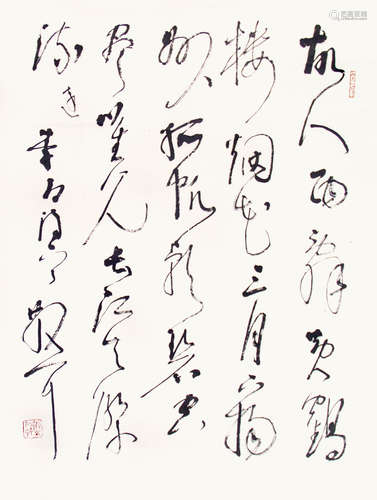 故人西辞黄鹤
楼烟花三月下扬
州孤帆远影碧空
尽唯见长江天际
流
李白诗